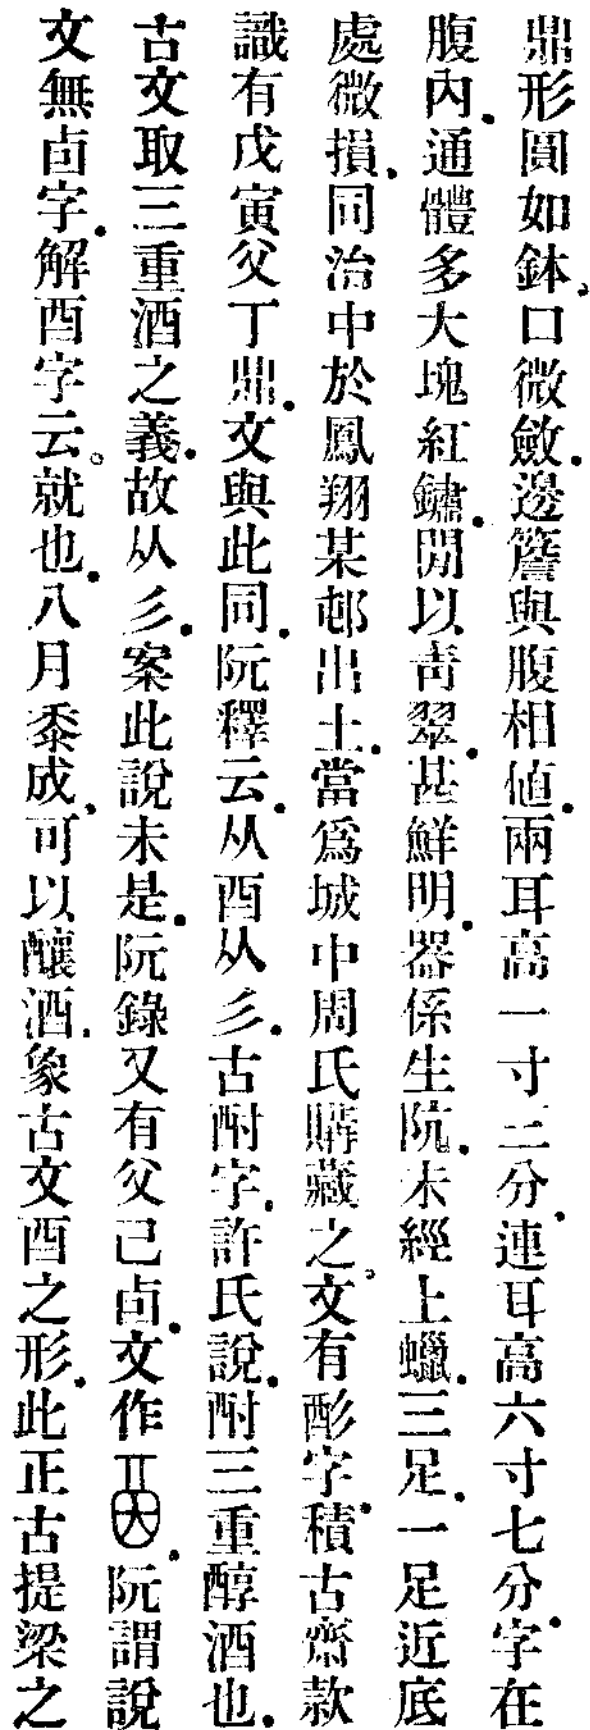 鼎形圓如鉢。口微斂.邊簷與腹相値.兩耳高一寸二分.連耳高六寸七分.字在
腹內.通體多大塊紅鏽.閒以靑翠.甚鮮明.器係生阬.未經上蠟.三足.一足近底
處微損.同治中於鳳翔某邨出土.當爲城中周氏購藏之。文有酓字.積古齋款
識有戊寅父丁鼎.文與此同.阮釋云.从酉从彡.古酎字.許氏說.酎三重醇酒也.
古文取三重酒之義.故从彡.案此說未是.阮錄又有父己卣.文作.阮謂說
文無卣字.解酉字云。就也.八月黍成.可以釀酒.象古文酉之形.此正古提梁之